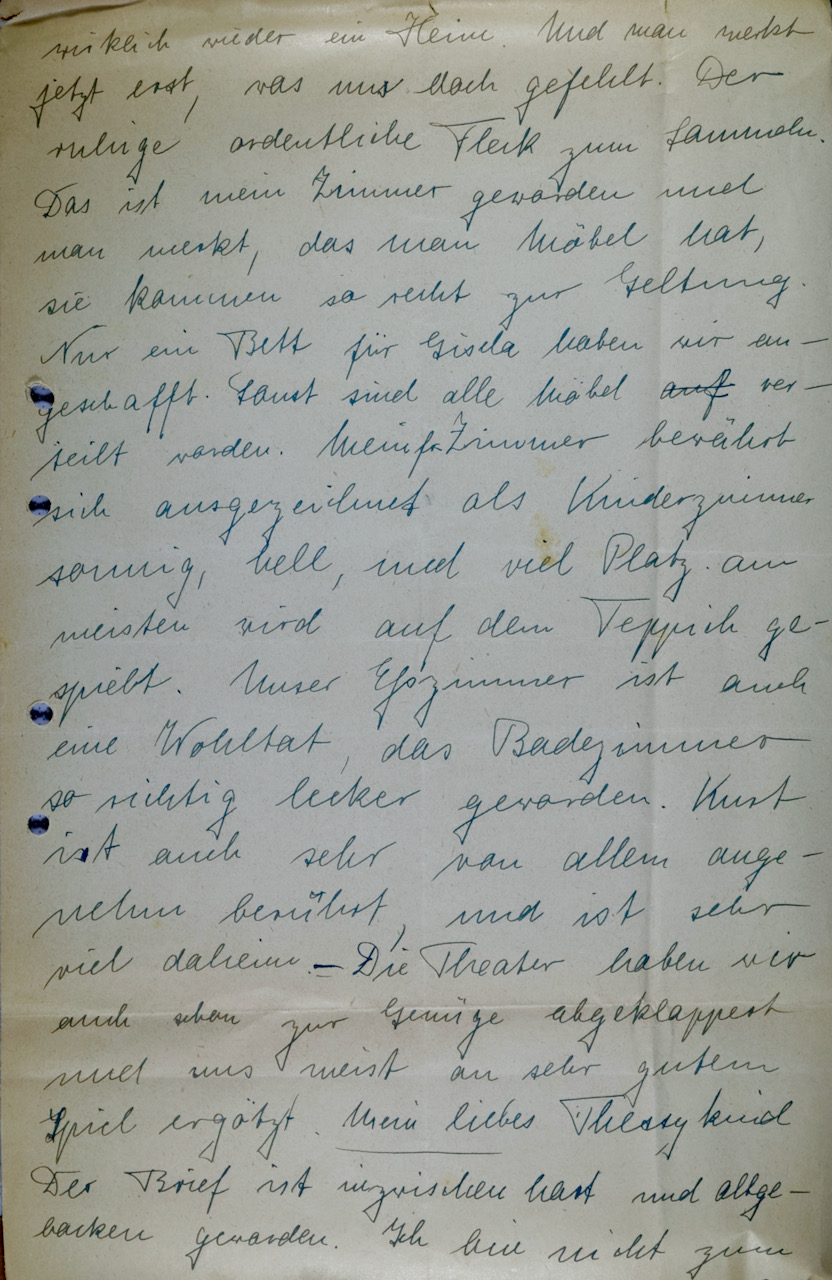 wirklich wieder ein Heim. Und man merkt
jetzt erst, was uns doch gefehlt. Der
ruhige ordentliche Fleck zum Sammeln.
Das ist mein Zimmer geworden und
man merkt, das man Möbel hat,
sie kommen so recht zur Geltung.
Nur ein Bett für Gisela haben wir an-
geschafft. Sonst sind alle Möbel auf ver-
teilt worden. Mein Zimmer bewährt
sich ausgezeichnet als Kinderzimmer
sonnig, hell, und viel Platz. am
meisten wird auf dem Teppich ge-
spielt. Unser Eßzimmer ist auch
eine Wohltat, das Badezimmer
so richtig lecker geworden. Kurt
ist auch sehr von allem ange-
nehm berührt, und ist sehr
viel daheim. – Die Theater haben wir
auch schon zur Genüge abgeklappert
und uns meist an sehr gutem
Spiel ergötzt. Mein liebes Thessykind
Der Brief ist inzwischen hart und altge-
backen geworden. Ich bin nicht zum